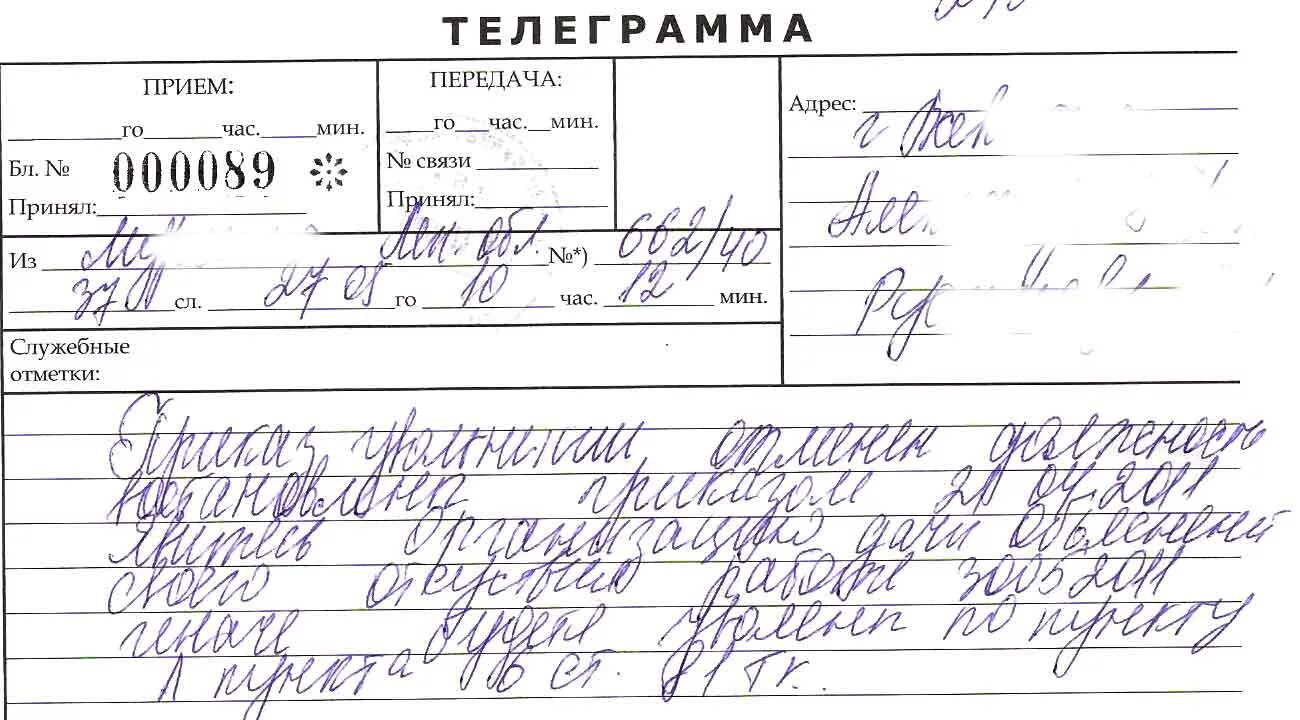 ТЕЛЕГРАММА
ПРИЕМ:
го час. мин.
Бл. № 000089
Принял:
ПЕРЕДАЧА:
го час. мин.
№ связи
Принял:
Адрес:
г.
Из Лен. обл. №*) 662/40
37 сл. 27 05 го 10 час. 12 мин.
Служебные
отметки:
Приказ увольнении отменен должность
востановлены приказом 21 04.2011
явитесь организацию дачи объяснений
своего отсутствия работе 30052011
иначе будете уволены по пункту
А пункта 6 ст. 81 тк.